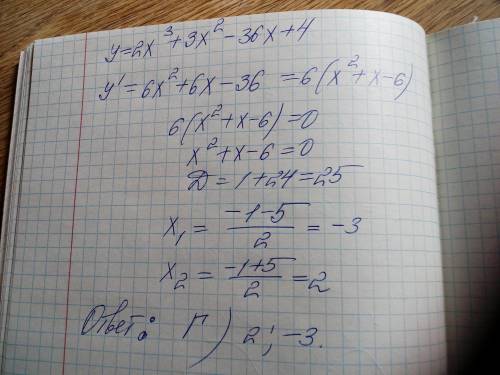 y=2x³+3x²-36x+4
y'=6x²+6x-36 =6(x²+x-6)
6(x²+x-6)=0
x²+x-6=0
Д=1+24=25
x₁ = (-1-5)/2 = -3
x₂ = (-1+5)/2 =2
Ответ: Г) 2; -3.